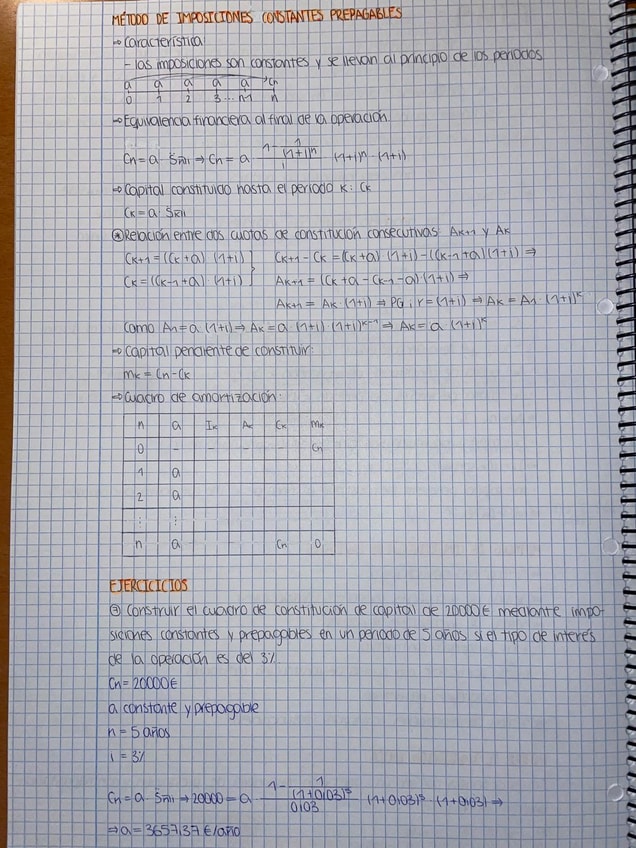 MÉTODO DE IMPOSICIONES CONSTANTES PREPAGABLES
⇒ Característica
- las imposiciones son constantes y se llevan al principio de los periodos
a a a a a Cn
0 1 2 3 ... n-1 n
⇒ Equivalencia financiera al final de la operación
Cn = a · S̈n¬i ⇒ Cn = a · (1 - 1/(1+i)^n)/i · (1+i)^n · (1+i)
⇒ Capital constituido hasta el periodo K: CK
CK = a · S̈K¬i
⊛ Relación entre dos cuotas de constitución consecutivas: AK+1 y AK
CK+1 = (CK + a) · (1+i) } CK+1 - CK = (CK + a) · (1+i) - ((CK-1 + a) (1+i) ⇒
CK = ((CK-1 + a) · (1+i) } AK+1 = (CK + a - CK-1 - a) · (1+i) ⇒
AK+1 = AK · (1+i) ⇒ PG, r = (1+i) ⇒ AK = A1 · (1+i)^K
Como A1 = a · (1+i) ⇒ AK = a · (1+i) · (1+i)^K-1 ⇒ AK = a · (1+i)^K
⇒ Capital pendiente de constituir:
mK = Cn - CK
⇒ Cuadro de amortización:
n a IK AK CK MK
0 - - - - Cn
1 a
2 a
⋮ ⋮
n a Cn 0
EJERCICICIOS
③ Construir el cuadro de constitución de capital de 20000€ mediante impo-
siciones constantes y prepagables en un periodo de 5 años si el tipo de interés
de la operación es del 3%
Cn = 20000€
a constante y prepagable
n = 5 años
i = 3%
Cn = a · S̈n¬i ⇒ 20000 = a · (1 - 1/(1+0,03)^5)/0,03 · (1+0,03)^5 · (1+0,03) ⇒
⇒ a = 3657,37 €/año